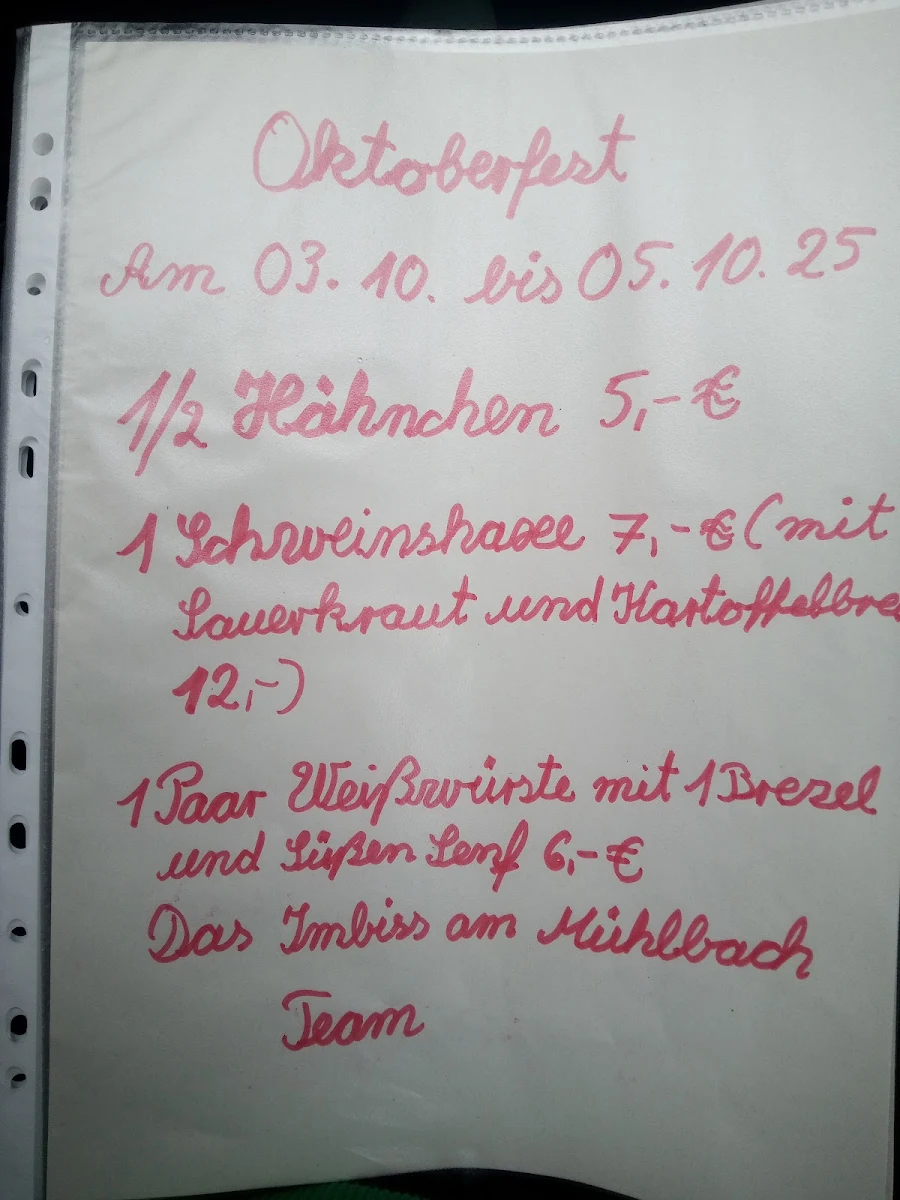 Oktoberfest
Am 03. 10. bis 05. 10. 25
1/2 Hähnchen 5,- €
1 Schweinshaxe 7,- € (mit
Sauerkraut und Kartoffelbre
12,-)
1 Paar Weißwürste mit 1 Brezel
und Süßen Senf 6,- €
Das Imbiss am Mühlbach
Team